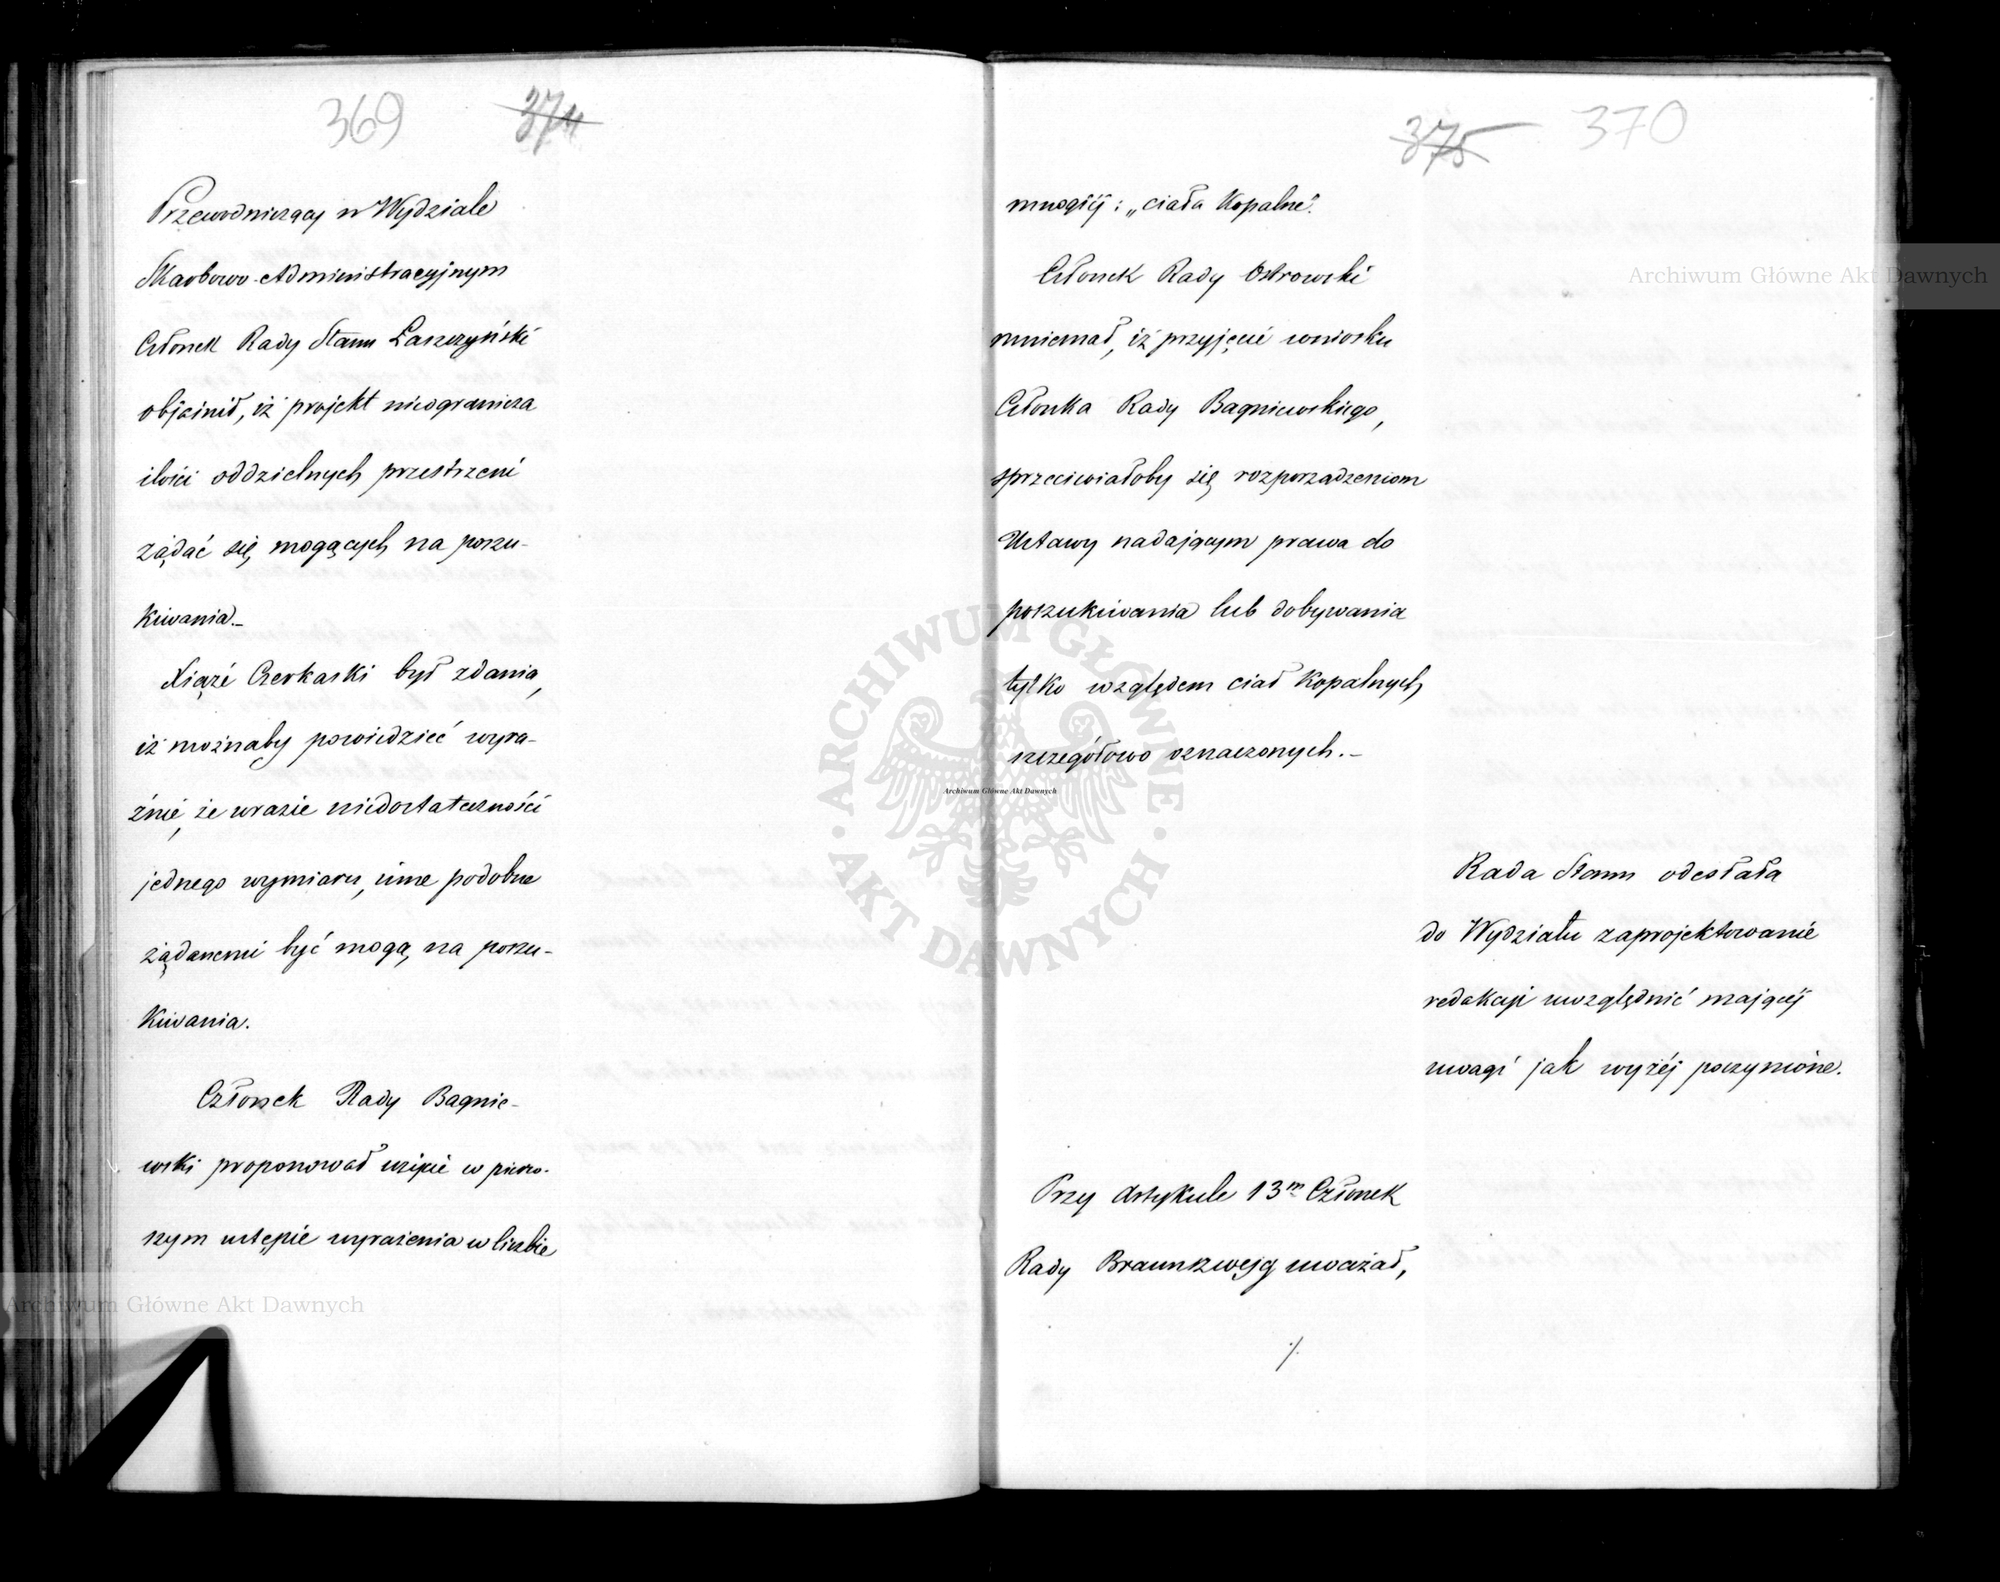 369 374
Przewodniczący w Wydziale
Skarbowo-Administracyjnym
Członek Rady Stanu Łaszczyński
objaśnił, iż projekt nieogranicza
ilości oddzielnych przestrzeni
żądać się mogących na poszu-
kiwania.–
Xiąże Czerkaski był zdania,
iż możnaby powiedzieć wyra-
źnie, że wrazie niedostateczności
jednego wymiaru, inne podobne
żądanemi być mogą, na poszu-
kiwania.
Członek Rady Bagnie-
wski proponował użycie w pierw-
szym ustępie wyrażenia w liczbie
375 370
mnogiéj: „ciała Kopalne”.
Członek Rady Ostrowski
mniemał, iż przyjęcie wniosku
Członka Rady Bagniewskiego,
sprzeciwiałoby się rozporządzeniom
Ustawy nadającym prawa do
poszukiwania lub dobywania
tylko względem ciał Kopalnych
szczegółowo oznaczonych.–
Rada Stanu odesłała
do Wydziału zaprojektowanie
redakcji uwzględnić mającéj
uwagi jak wyżéj poczynione.
Przy Artykule 13m Członek
Rady Braunszwejg uważał,
./.
Archiwum Główne Akt Dawnych
ARCHIWUM GŁÓWNE
Archiwum Główne Akt Dawnych
AKT DAWNYCH
Archiwum Główne Akt Dawnych